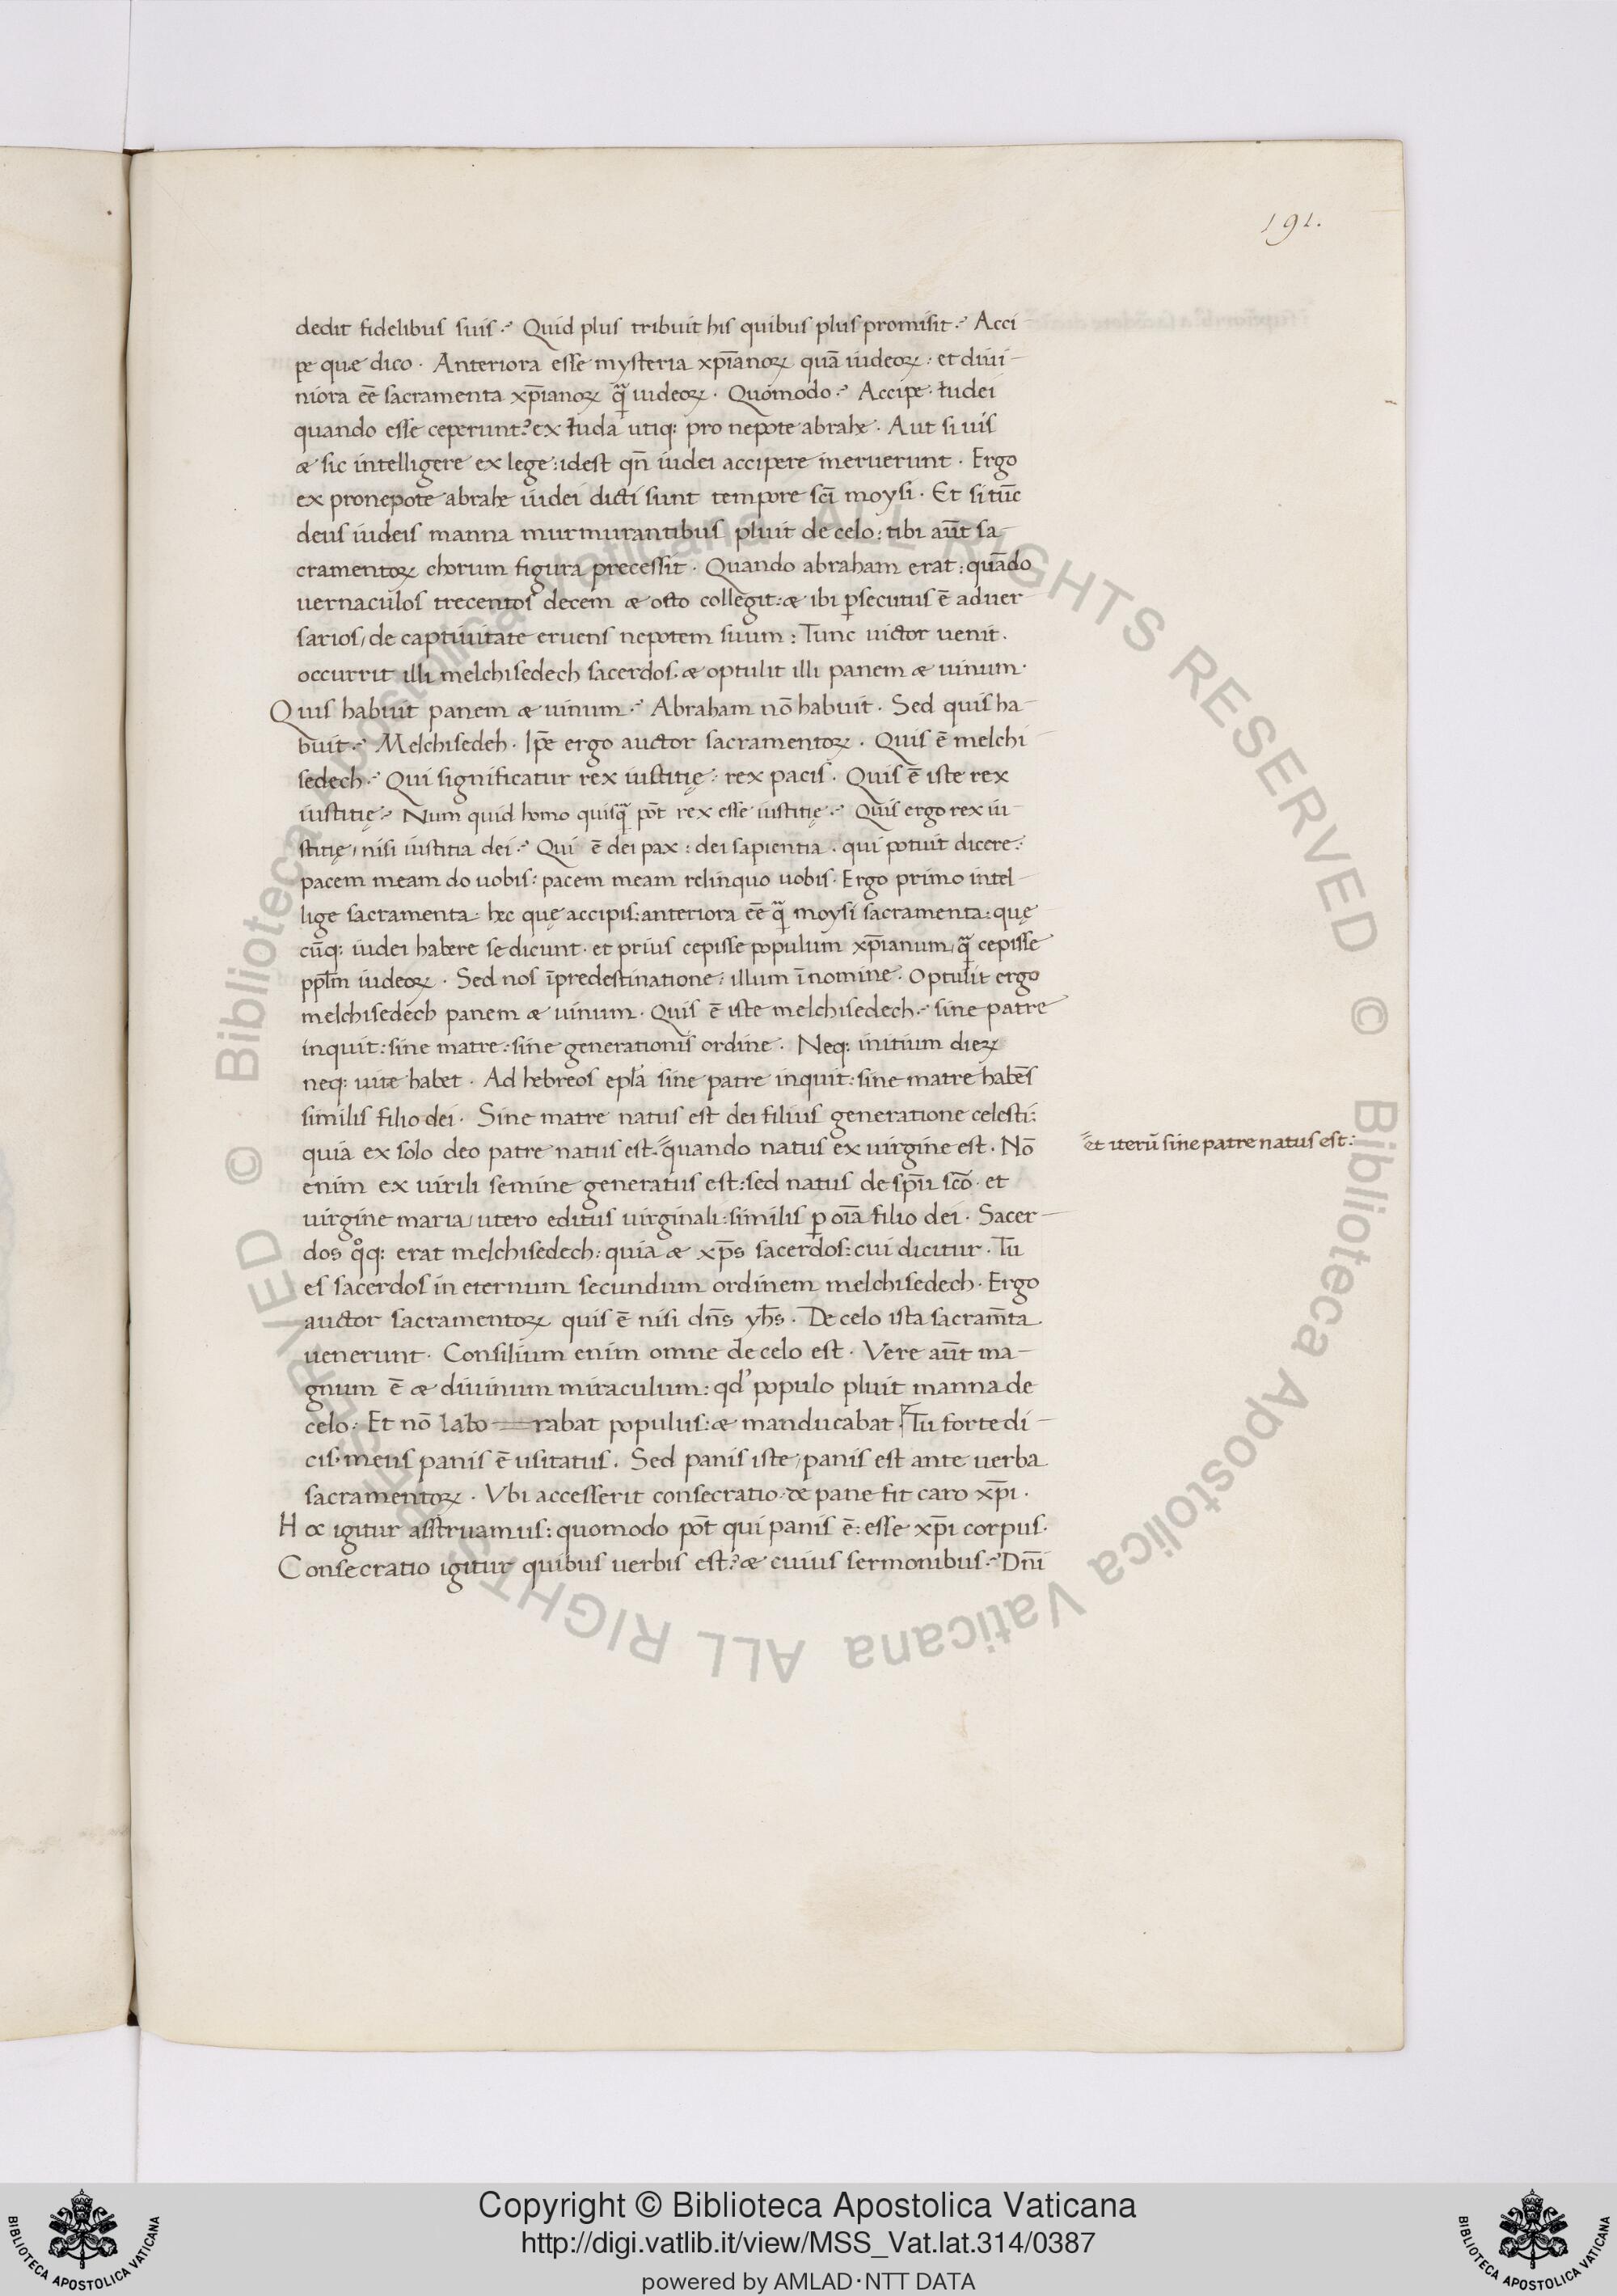 191.
dedit fidelibus suis. Quid plus tribuit his quibus plus promisit. Acci-
pe quæ dico. Anteriora esse mysteria xp̄ianoꝝ quā iudeoꝝ: et diui-
niora eē sacramenta xp̄ianoꝝ q̄ iudeoꝝ. Quomodo. Accipe. Iudei
quando esse ceperunt? ex Iuda utiq: pro nepote abrahæ. Aut si uis
æ sic intelligere ex lege: idest qn̄ iudei accipere meruerunt. Ergo
ex pronepote abrahæ iudei dicti sunt tempore scī moysi. Et si tūc
deus iudeis manna murmurantibus pluit de celo: tibi aūt sa-
cramentoꝝ choꝛum figura precessit. Quando abraham erat: quādo
uernaculos trecentos decem æ octo collegit: æ ibi ꝑsecutus ē aduer
sarios, de captiuitate eruens nepotem suum: Tunc uictor uenit.
occurrit illi melchisedech sacerdos. æ optulit illi panem æ uinum.
Quis habuit panem æ uinum. Abraham nō habuit. Sed quis ha-
buit. Melchisedeh. Ip̄e ergo auctor sacramentoꝝ. Quis ē melchi-
sedech. Qui significatur rex iustitię: rex pacis. Quis ē iste rex
iustitię. Num quid homo quisq̄ pōt rex esse iustitię. Quis ergo rex iu-
stitię, nisi iustitia dei. Qui ē dei pax: dei sapientia. qui potuit dicere:
pacem meam do uobis: pacem meam relinquo uobis. Ergo primo intel-
lige sacramenta hæc quę accipis: anteriora eē q̄ moysi sacramenta: quę
cūq: iudei habere se dicunt. et prius cepisse populum xp̄ianum, q̄ cepisse
pplm̄ iudeoꝝ. Sed nos īpredestinatione: illum ī nomine. Optulit ergo
melchisedech panem æ uinum. Quis ē iste melchisedech. sine patre
inquit: sine matre: sine generationis ordine. Neq: initium dieꝝ
neq: uitæ habet. Ad hebreos epl̄a sine patre inquit: sine matre habēs
similis filio dei. Sine matre natus est dei filius generatione celesti:
quia ex solo deo patre natus est. quando natus ex uirgine est. Nō
et iterū sine patre natus est:
enim ex uirili semine generatus est: sed natus de spū scō. et
uirgine maria, utero editus uirginali: similis ꝑ oīa filio dei. Sacer-
dos qͦq: erat melchisedech: quia æ xp̄s sacerdos: cui dicitur. Tu
es sacerdos in eternum secundum ordinem melchisedech. Ergo
auctor sacramentoꝝ quis ē nisi dn̄s yh̄s. De celo ista sacram̄ta
uenerunt. Consilium enim omne de celo est. Vere aūt ma-
gnum ē æ diuinum miraculum: qd' populo pluit manna de
celo: Et nō labo—rabat populus: æ manducabat. Tu forte di-
cis. meus panis ē usitatus. Sed panis iste, panis est ante uerba
sacramentoꝝ. Vbi accesserit consecratio. de pane fit caro xp̄i.
Hoc igitur astruamus: quomodo pōt qui panis ē: esse xp̄i corpus.
Consecratio igitur quibus uerbis est? æ cuius sermonibus. Dn̄i
© Biblioteca Apostolica Vaticana ALL RIGHTS RESERVED
© Biblioteca Apostolica Vaticana ALL RIGHTS RESERVED
Copyright © Biblioteca Apostolica Vaticana
http://digi.vatlib.it/view/MSS_Vat.lat.314/0387
powered by AMLAD·NTT DATA
BIBLIOTECA APOSTOLICA VATICANA
BIBLIOTECA APOSTOLICA VATICANA